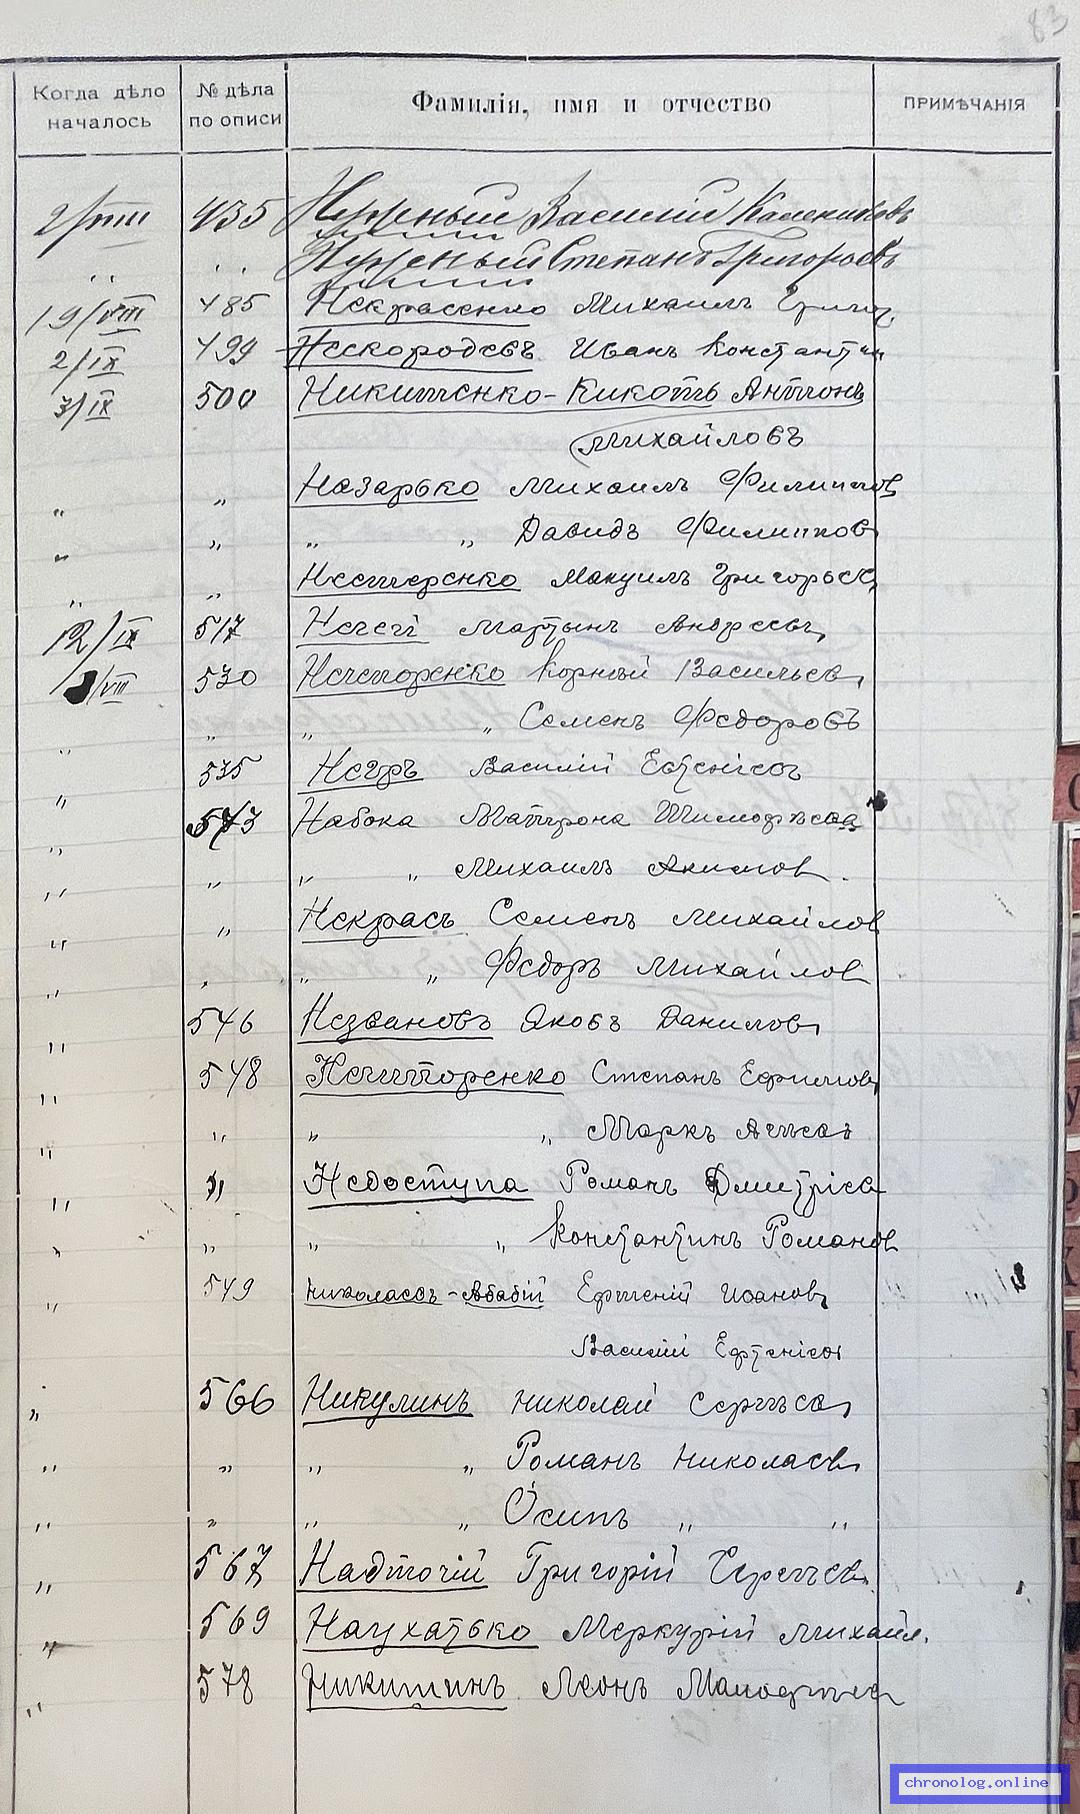 83
Когда дѣло началось № дѣла по описи Фамилія, имя и отчество ПРИМѢЧАНІЯ
2/VIII 435 Нужный Василій Калениковъ
" " Нужный Степанъ Григорьевъ
19/VIII 485 Некрасенко Михаилъ Григ.
2/IX 499 Нескородевъ Иванъ Константин
3/IX 500 Никитенко-Кикоть Антонъ
Михайловъ
" " Назарько Михаилъ Филиппов
" " " " Давидъ Филиппов
" " Нестеренко Мануилъ Григорьев
12/IX 517 Негей Мартынъ Андреевъ
/VII 530 Нечепоренко Корній Васильев
" " " " Семенъ Федоровъ
" 535 Негръ Василій Евгеніев
" 573 Набока Матрона Тимофѣева
" " " " Михаилъ Акимов
" " Некрасъ Семенъ Михайлов
" " " " Федоръ Михайлов
" 546 Незвановъ Яковъ Данилов
" 548 Нечипоренко Степанъ Ефимов
" " " " Маркъ
" " Недоступа Романъ Дмитріев
" " " " Константинъ Романов
" 549 Николаевъ-Абабій Евгеній Иванов
Василій Евгеніев
" 566 Никулинъ Николай Сергѣев
" " " " Романъ Николаев
" " " " Осипъ " "
" 567 Надточій Григорій Сергѣев
" 569 Наухатько Меркурій Михайл.
" 578 Никитинъ Леонъ
chronolog.online